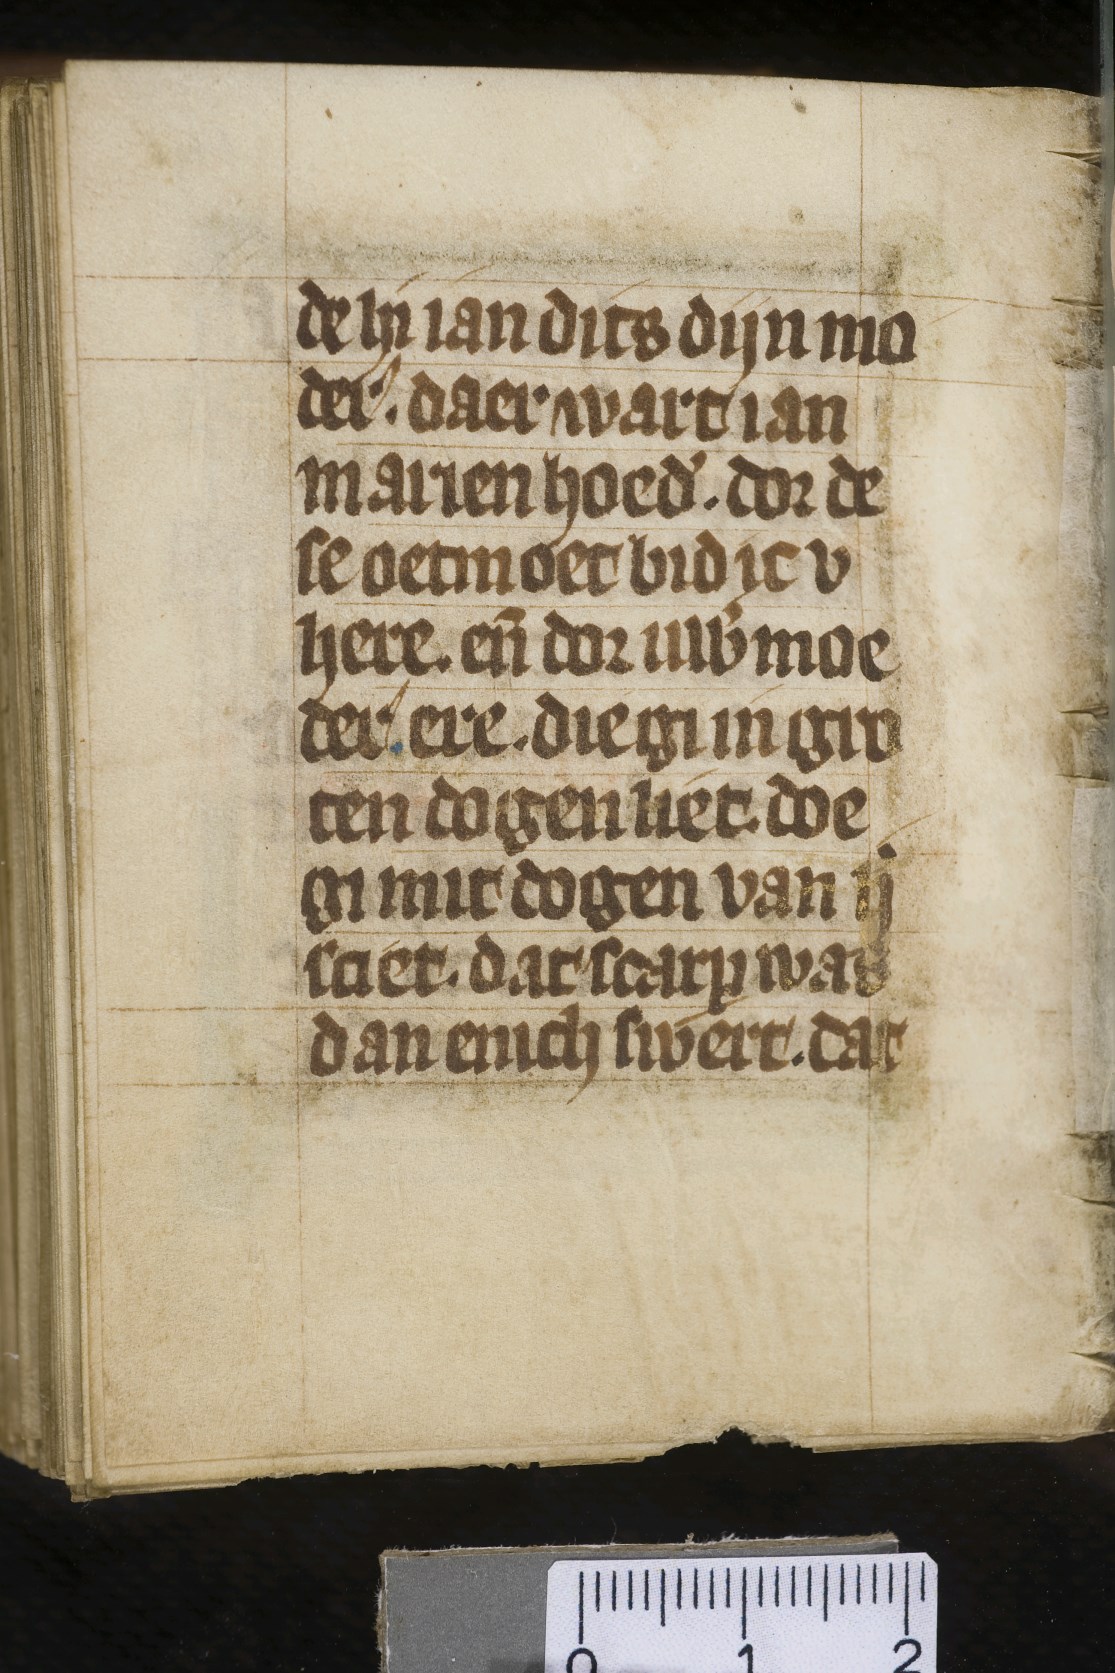 de hi ian dits dijn mo
der. daer wart ian
marien hoed'. dor de
se oetmoet bid ic v
here. en̄ dor uw' moe
der ere. die gi in gro
ten dogen liet. doe
gi mit dogen van ij
sciet. dat scarp was
dan enich swert. dat
0 1 2